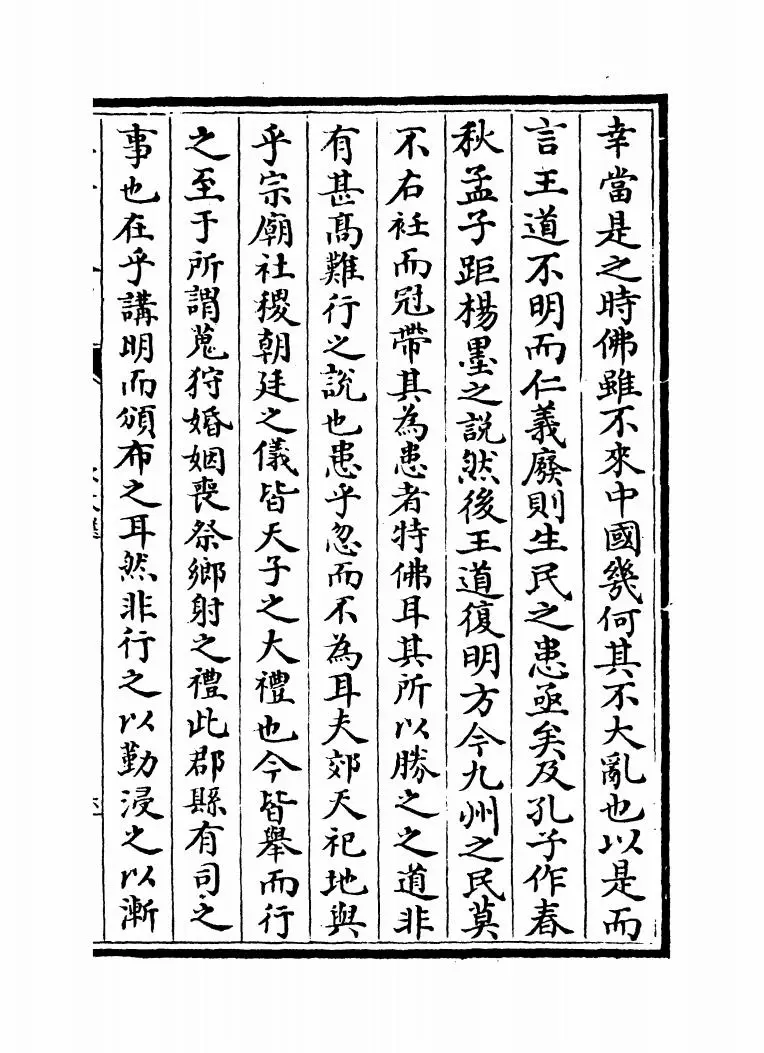 幸當是之時佛雖不來中國幾何其不大亂也以是而
言王道不明而仁義廢則生民之患亟矣及孔子作春
秋孟子距楊墨之說然後王道復明方今九州之民莫
不右衽而冠帶其為患者特佛耳其所以勝之之道非
有甚高難行之說也患乎忽而不為耳夫郊天祀地與
乎宗廟社稷朝廷之儀皆天子之大禮也今皆舉而行
之至于所謂蒐狩婚姻喪祭鄉射之禮此郡縣有司之
事也在乎講明而頒布之耳然非行之以勤浸之以漸